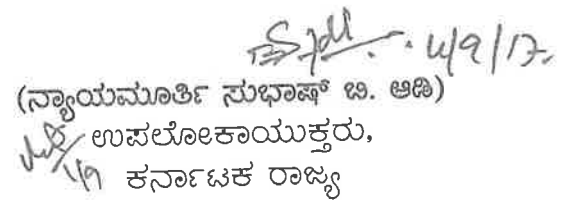 4/9/17
(ನ್ಯಾಯಮೂರ್ತಿ ಸುಭಾಷ್ ಬಿ. ಆಡಿ)
ಉಪಲೋಕಾಯುಕ್ತರು,
ಕರ್ನಾಟಕ ರಾಜ್ಯ